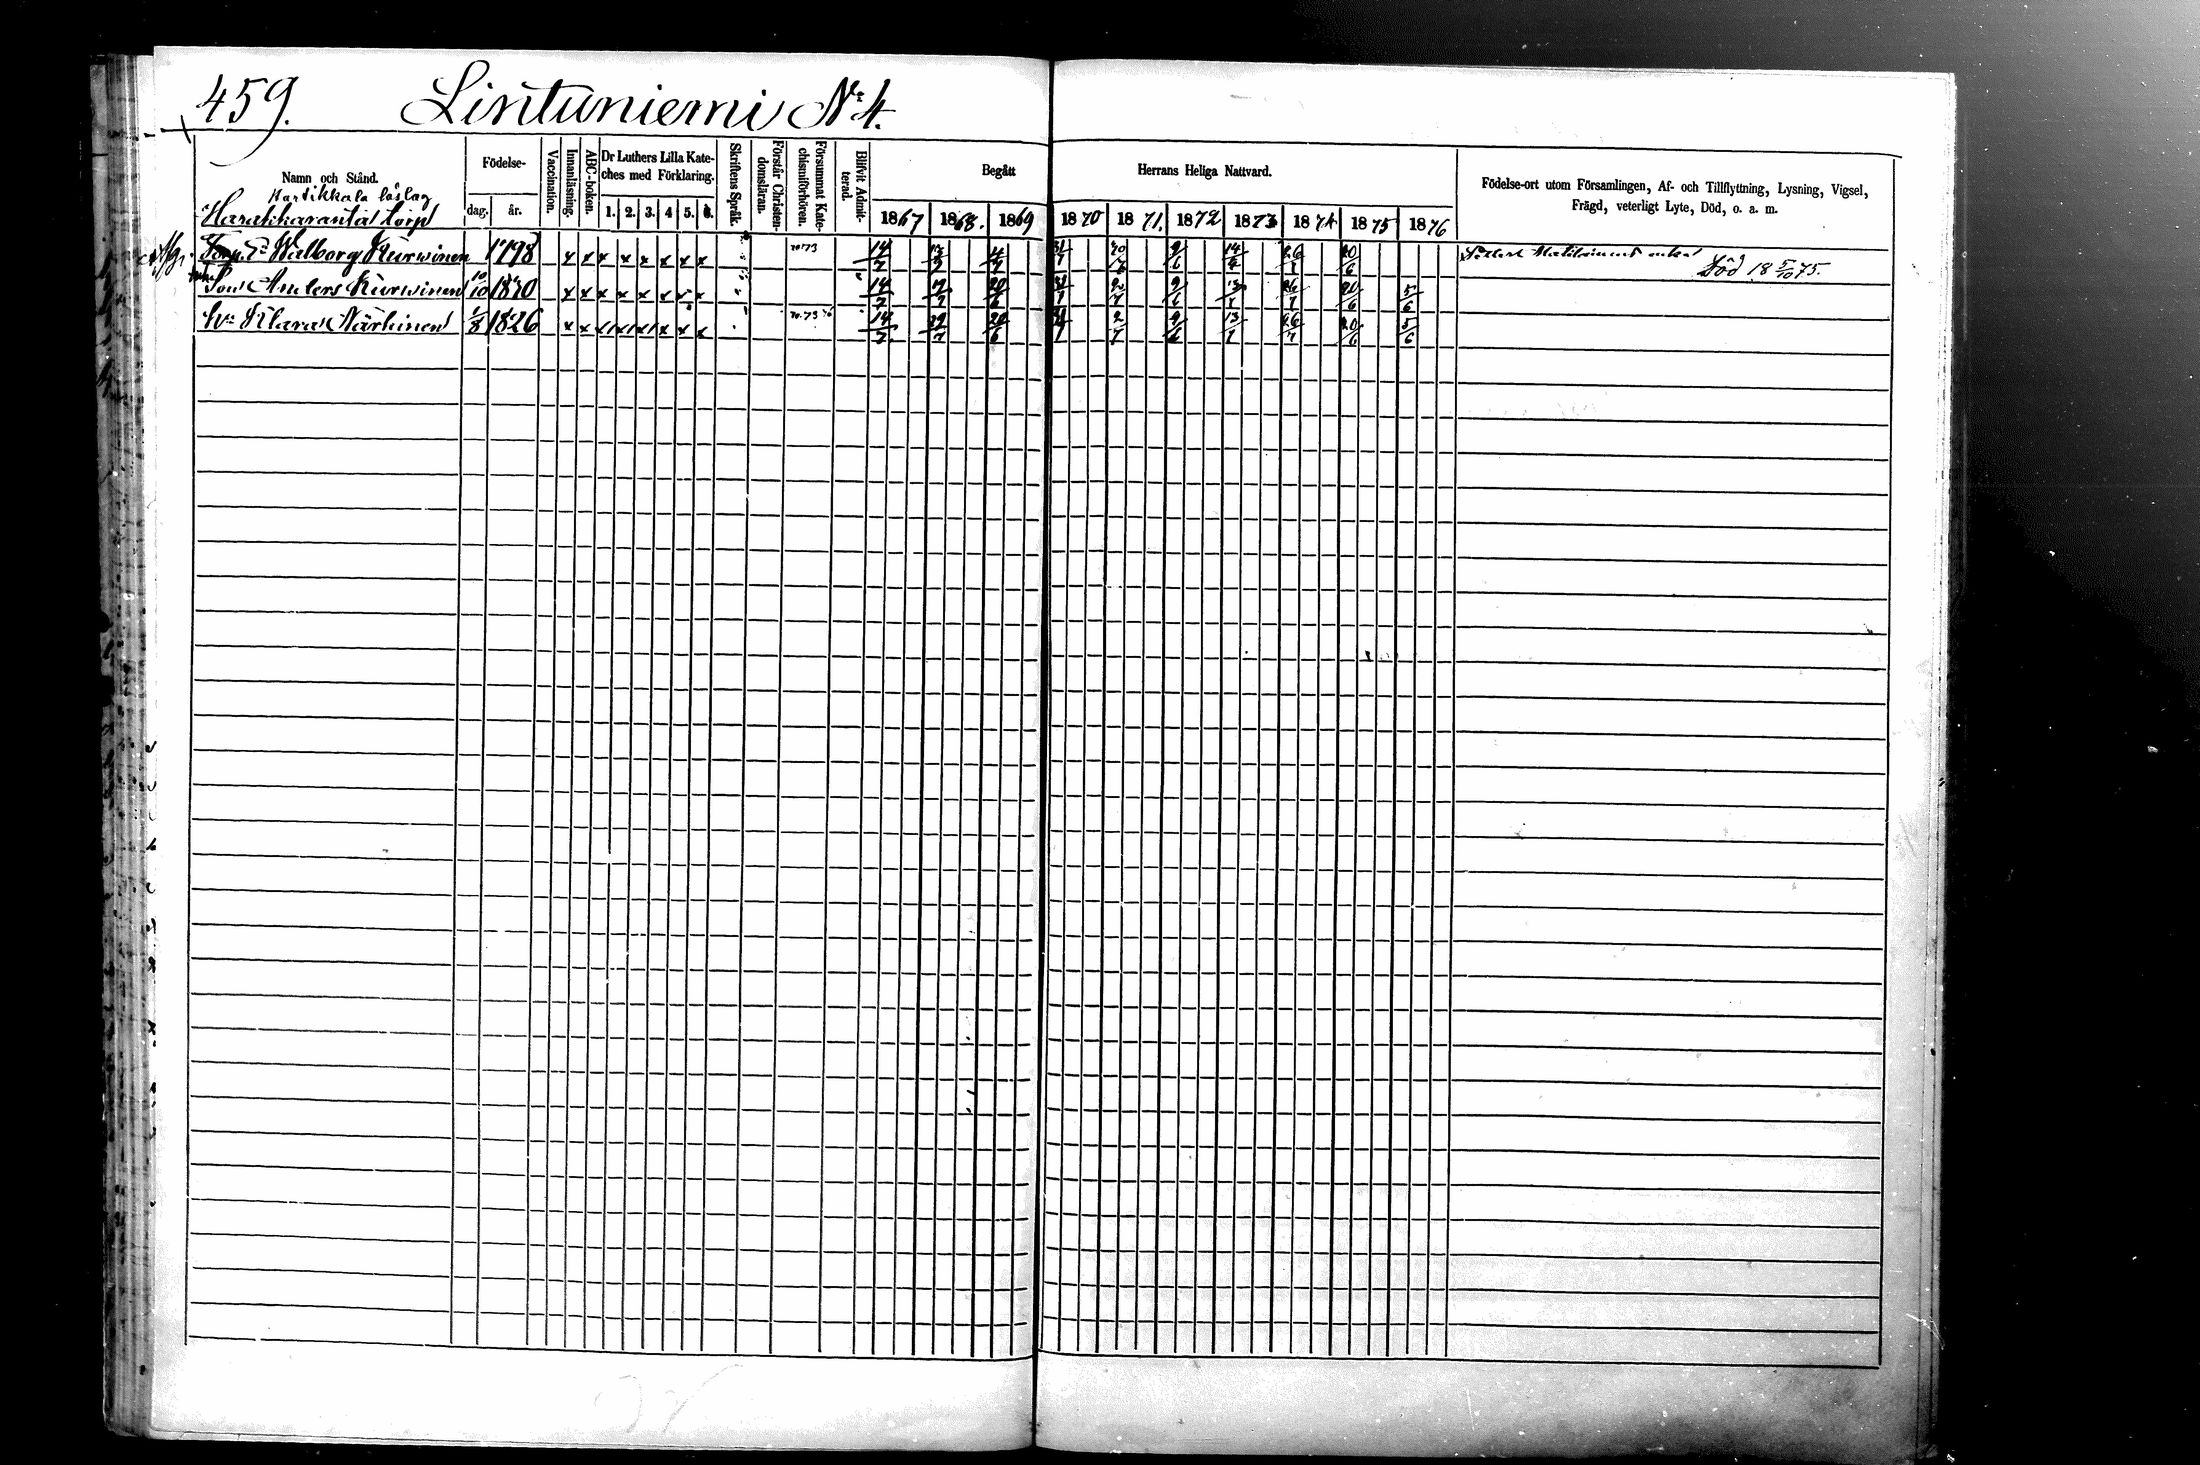 459. Lintuniemi No 4.
Namn och Stånd.
Födelse-
dag. år.
Vaccination.
Innanläsning.
ABC-boken.
Dr Luthers Lilla Kate-
ches med Förklaring.
1. 2. 3. 4 5. 6.
Skriftens Språk.
Förstår Christen-
domsläran.
Försummat Kate-
chismiförhören.
Blifvit Admit-
terad.
Begått Herrans Heliga Nattvard.
1867 1868. 1869 1870 1871. 1872 1873 1874 1875 1876
Födelse-ort utom Församlingen, Af- och Tillflyttning, Lysning, Vigsel,
Frägd, veterligt Lyte, Död, o. a. m.
Hartikkala
Harakkaranta torp
Walborg Kurwinen 1798 x x x x x x x x 14/7 9/6 14 26 20/6 enka
Död 18 5/10 75.
Son Anders Kurwinen 10/10 1830 x x x x x x x x 14/7 20/6 2/7 9/6 26/7 20/6 5/6
Klara Närhinen 1/8 1826 x x x x x x x x 14/7 29/7 20/6 2/7 9/6 13 26/7 20/6 5/6